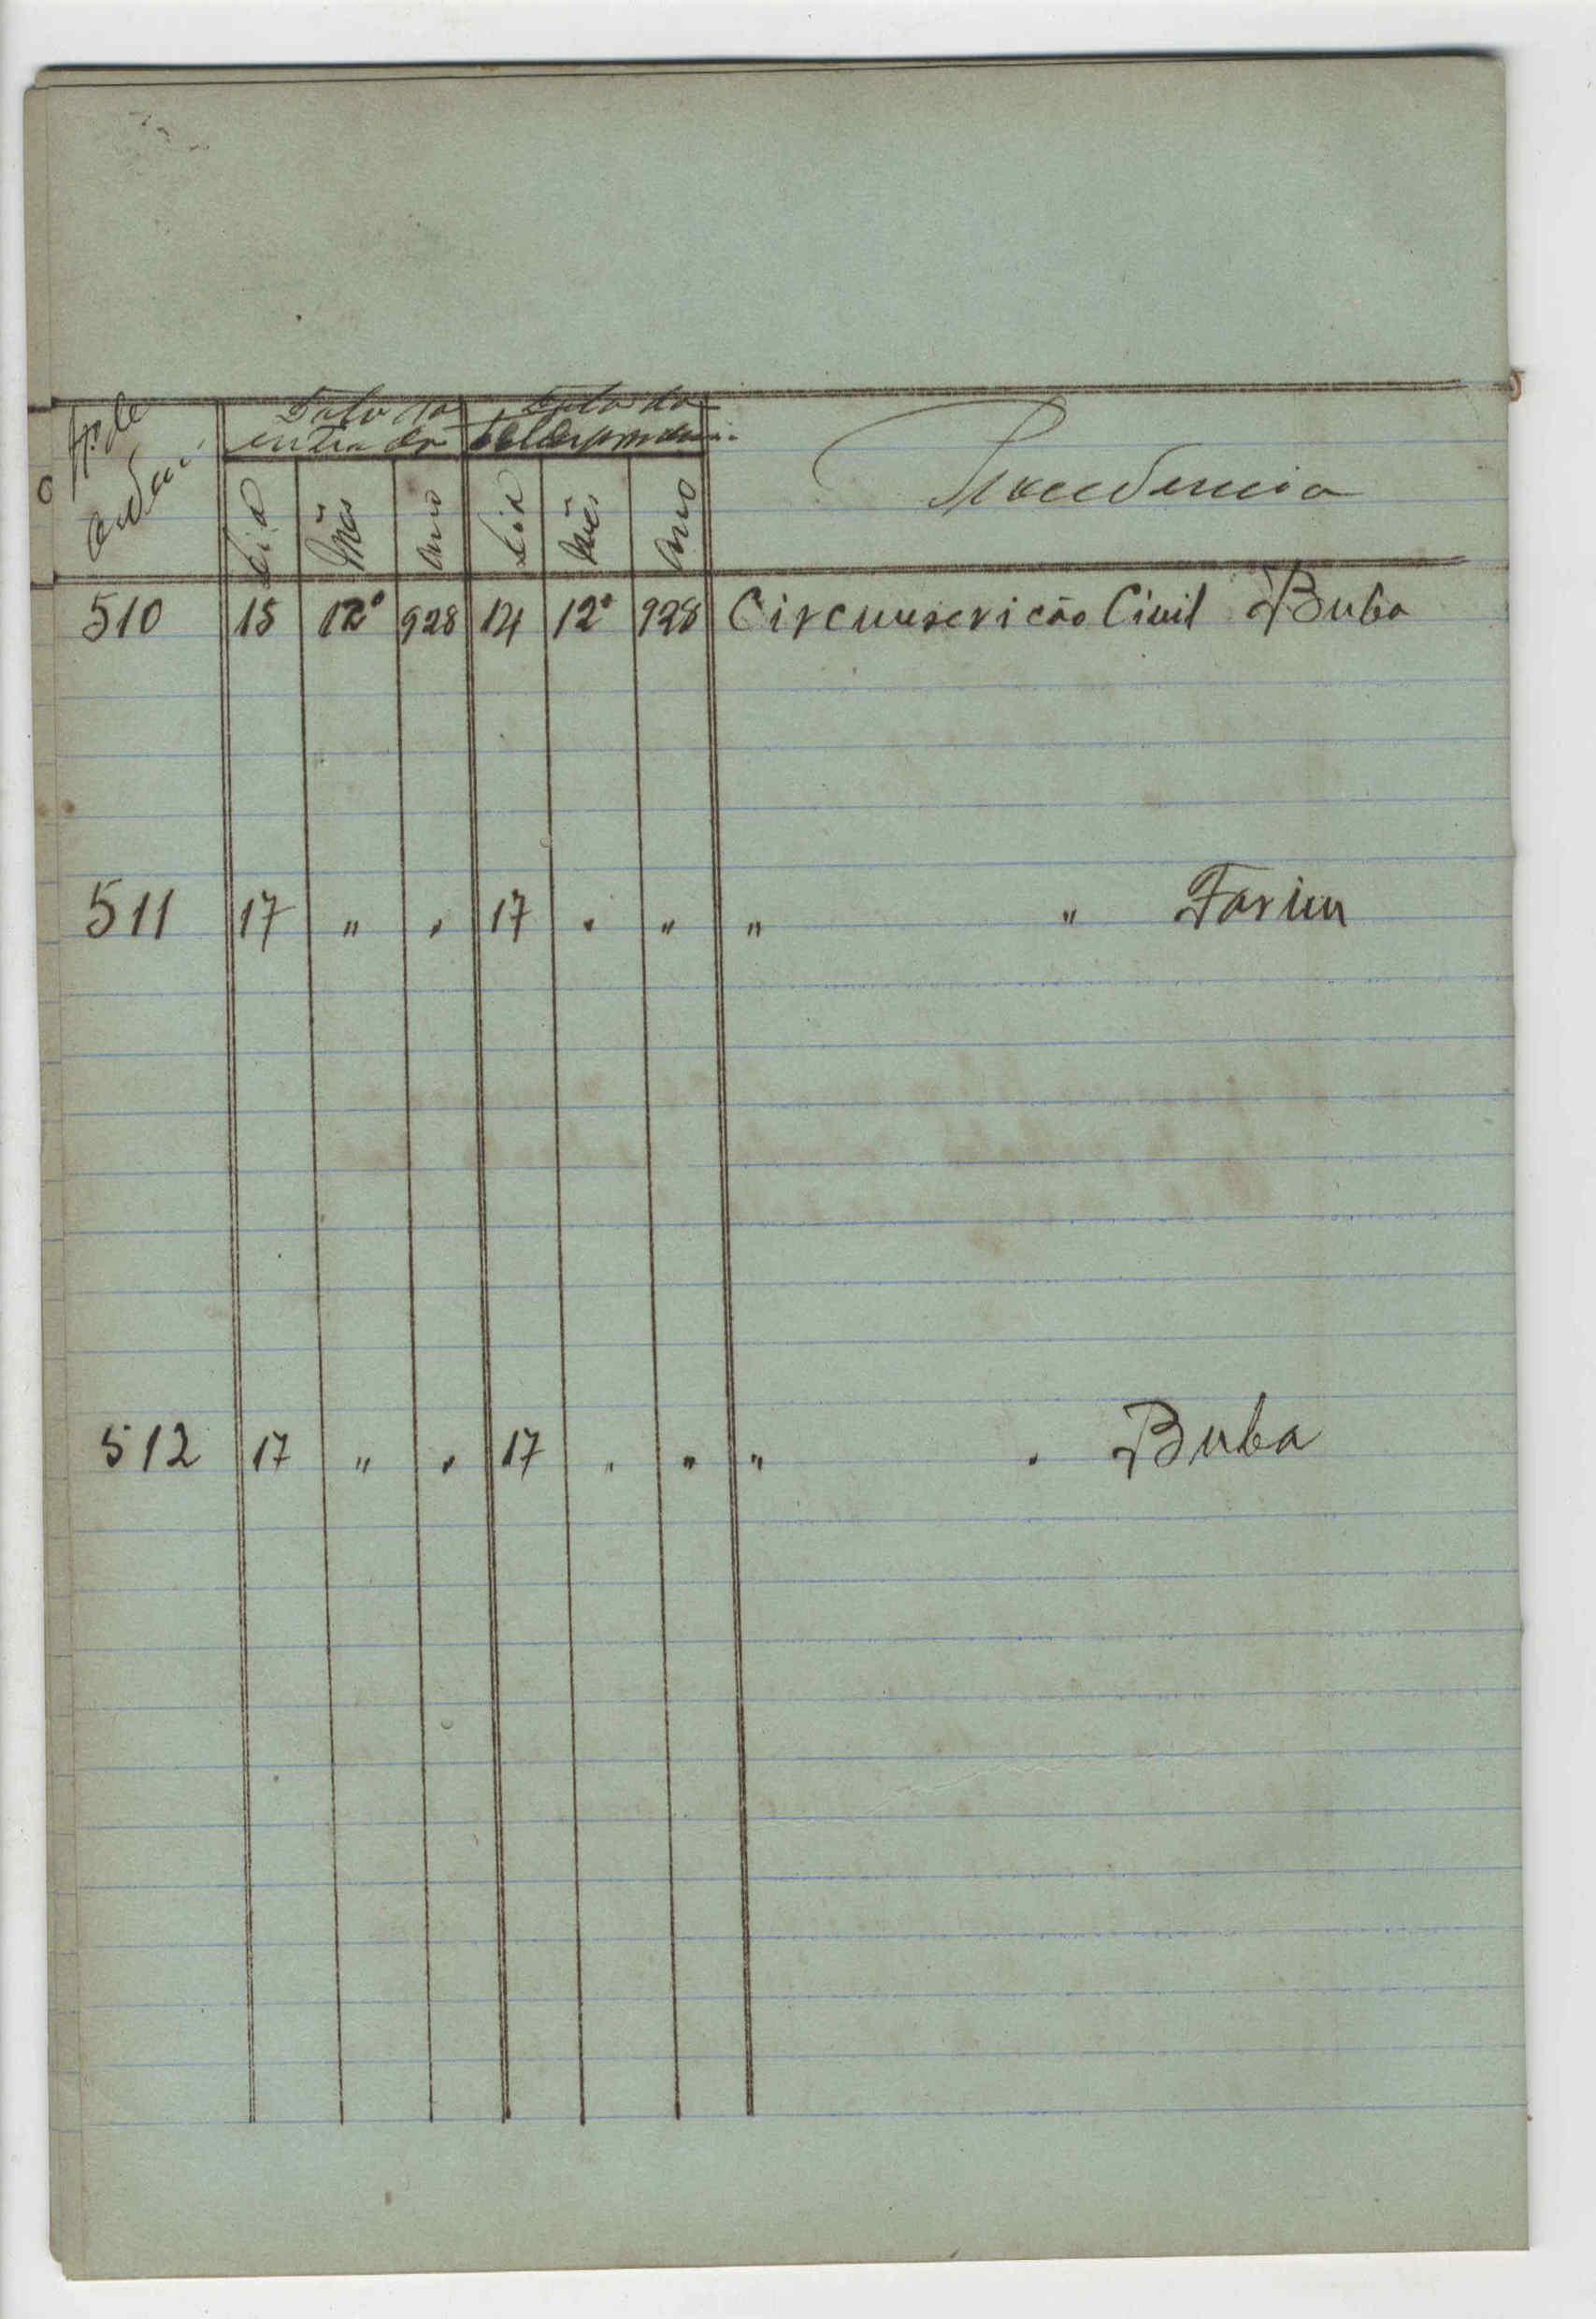 Nº de Data da Data da
ordem entrada correspondencia Procedencia
Dia Mês Ano Dia Mês Ano
510 15 12º 928 14 12º 928 Circunscricão Civil Buba
511 17 " " 17 " " " " Farim
512 17 " " 17 " " " " Buba